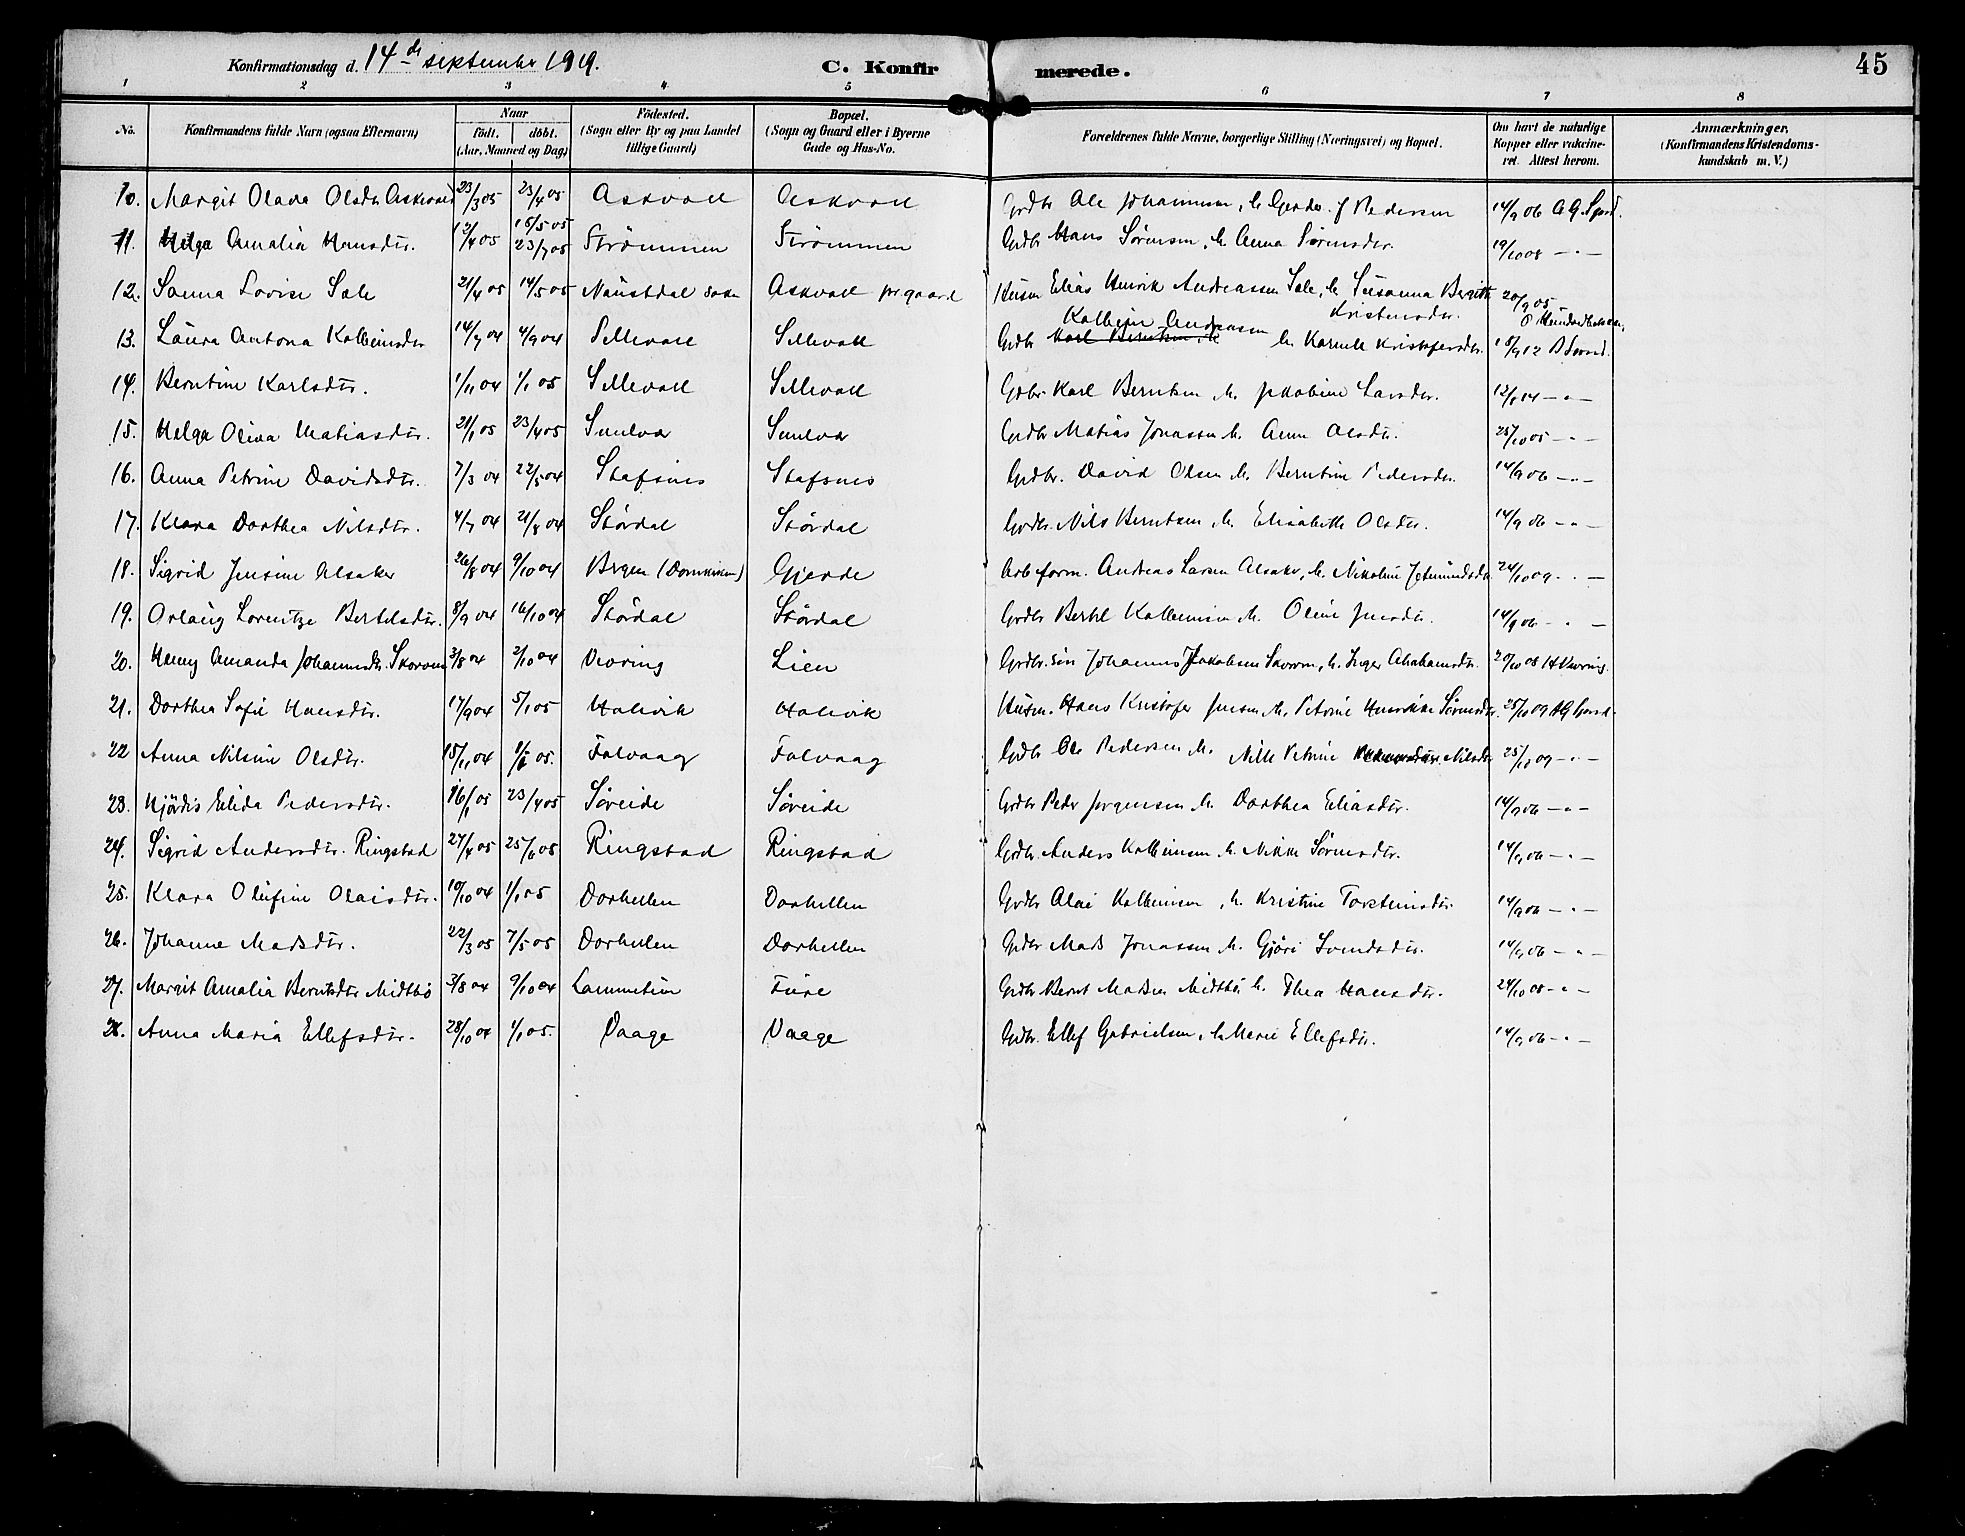 Konfirmationsdag d. 14de september 1919. C. Konfirmerede. 45
1 2 3 4 5 6 7 8
No. Konfirmandens fulde Navn (ogsaa Efternavn) Naar født. døbt. (Aar, Maaned og Dag) Fødested. (Sogn eller By og paa Landet tillige Gaard) Bopæl. (Sogn og Gaard eller i Byerne Gade og Hus-No. Forældrenes fulde Navne, borgerlige Stilling (Næringsvei) og Bopæl. Om havt de naturlige Kopper eller vakcineret. Attest herom. Anmærkninger, (Konfirmandens Kristendomskundskab m. V.)
10. Margit Olava Olsdtr Askvoll 23/3 05 23/4 05 Askvoll Askvoll Grdbr Ole Johannesen, h. Gjerdr. J Pedersen 14/9 06 A G. Sjord.
15/5 05
11. Helga Amalia Hansdtr. 12/4 05 23/7 05 Strømmen Strømmen Grdbr Hans Sørensen, h. Anna Sørensdtr. 19/10 08 — " —
12. Sanna Lovise Sale 21/4 05 14/5 05 Naustdal sokn Askvoll pr.gaard Husm Elias Henrik Andreassen Sale, h. Susanna Birgitte Kristensdtr. 20/9 05
13. Laura Antona Kolbeinsdtr 14/7 04 4/9 04 Sellevoll Sellevoll Grdbr Kolbein Andreasen h. Karnele Kristofersdtr. 18/9 12 B Svord.
14. Berntine Karlsdtr. 1/11 04 1/1 05 Sellevoll Sellevoll Grdbr. Karl Berntsen h. Jakobine Larsdtr. 12/8 14 — " —
15. Helga Oliva Matiasdtr. 21/1 05 23/4 05 Smelvær Smelvær Grdbr Matias Jonassen h. Anne Olsdtr. 25/10 05 — " —
16. Anna Petrine Davidsdtr. 7/3 04 22/5 04 Stafsnes Stafsnes Grdbr. David Olsen h. Berntine Pedersdtr. 14/9 06 — " —
17. Klara Dorthea Nilsdtr. 4/7 04 21/8 04 Stórdal Stórdal Grdbr. Nils Berntsen h. Elisabeth Olsdtr. 14/9 06 — " —
18. Sigrid Jensine Alsaker 26/8 04 9/10 04 Bergen (Domkirken) Gjerde Arb.form. Andreas Larsen Alsaker, h. Nikoline Jetmundsdtr 24/10 09 — " —
19. Orlaug Lorentze Bertelsdtr. 8/9 04 16/10 04 Stórdal Stórdal Grdbr Bertel Kolbeinsen h. Oline Jensdtr. 14/9 06 — " —
20. Henny Amanda Johannesdtr. Skorven 3/8 04 2/10 04 Vevring Lien Grdbr.søn Johannes Jakobsen Skorven, h. Inger Abrahamsdtr. 20/10 08 H Vevring.
21. Dorthea Sofie Hansdtr. 17/9 04 5/1 05 Holevik Holevik Husm. Hans Kristofer Jensen h. Petrine Henrikke Sørensdtr. 25/10 09 AG Sjord.
22 Anna Nilsine Olsdtr. 15/11 04 1/1 05. Folvaag Folvaag Grdbr Ole Pedersen h. Nille Petrine Nilsdtr 25/10 09 — " —
23. Hjördis Elida Pedersdtr. 16/1 05 23/4 05 Søreide Søreide Grdbr Peder Jørgensen h. Dorthea Eliasdtr. 14/9 06 — " —
24. Sigrid Andersdtr. Ringstad 27/4 05 25/6 05 Ringstad Ringstad Grdbr. Anders Kolbeinsen h. Nikka Sørensdtr. 14/9 06 — " —
25. Klara Olufine Olaisdtr. 10/10 04 1/1 05 Dorhellen Dorhellen Grdbr Olai Kolbeinsen, h. Kristine Torsteinsdtr. 14/9 06 — " —
26. Johanne Madsdtr. 22/3 05 7/5 05 Dorhellen Dorhellen Grdbr Mads Jonassen h. Gjøri Svendsdtr. 14/9 06 — " —
27. Margit Amalia Berntsdtr Midtbö 3/8 04 9/10 04 Lammetun Fure Grdbr Bernt Madsen Midtbö h. Thea Hansdtr. 24/10 08 — " —
28. Anna Maria Ellefsdtr. 28/10 04 1/1 05. Vaage Vaage Grdbr. Ellef Gabrielsen, h. Marie Ellefsdtr. 14/9 06 — " —